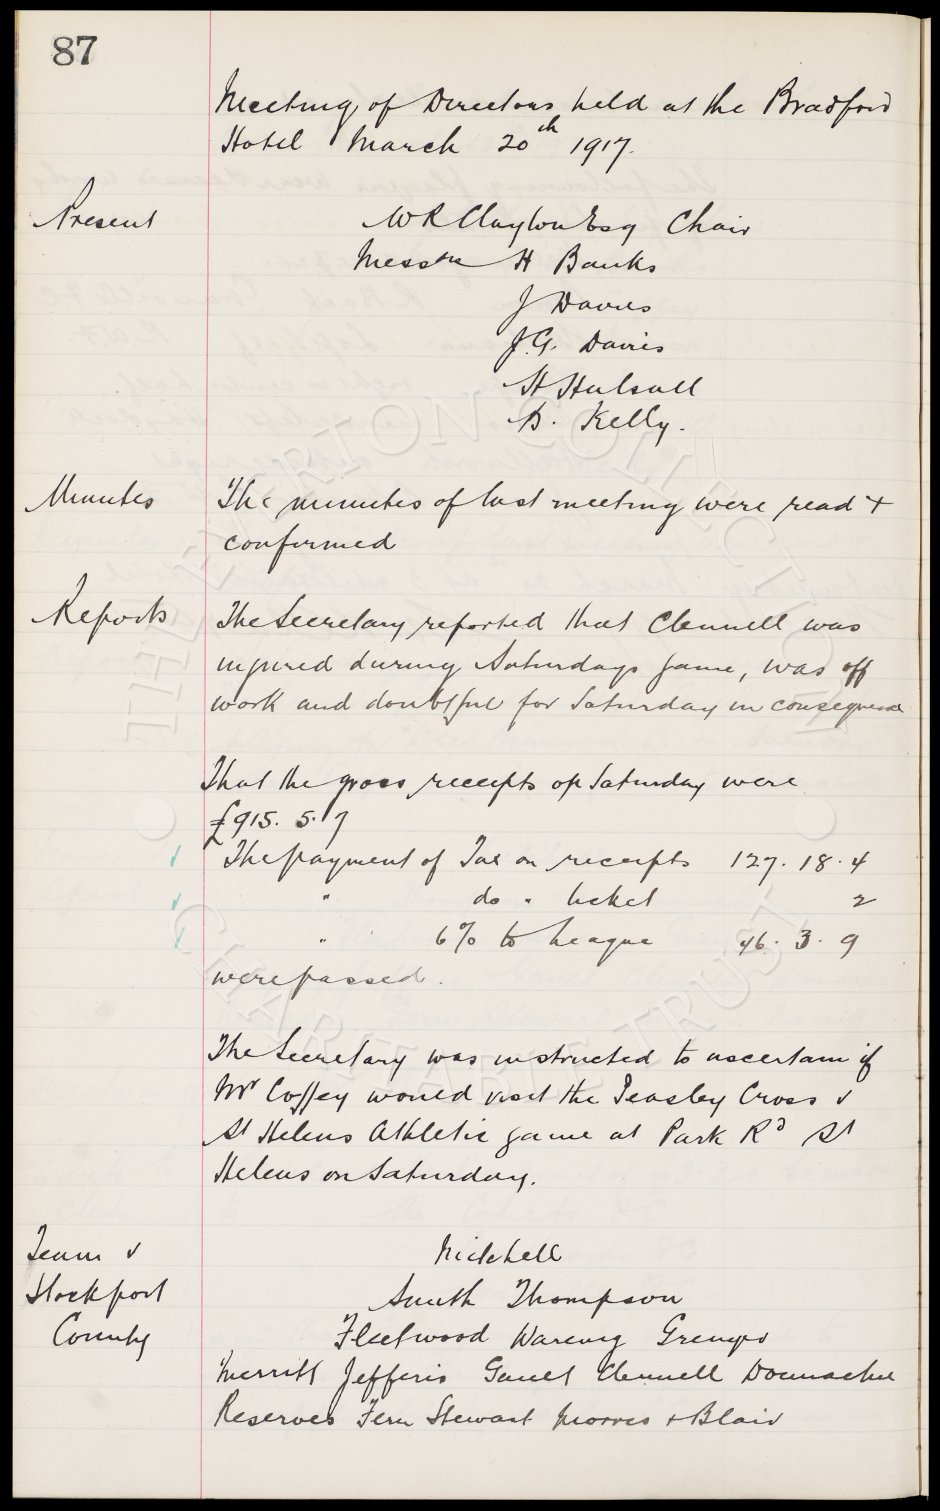 87
Meeting of Directors held at the Bradford
Hotel March 20th 1917.
Present
W R Clayton Esq Chair
Messrs H Banks
J Davies
J.G. Davies
H Halsall
B. Kelly.
Minutes
The minutes of last meeting were read +
confirmed
Reports
The Secretary reported that Clennell was
injured during Saturdays game, was off
work and doubtful for Saturday in consequence
That the gross receipts of Saturday were
£915. 5. 7
The payment of Tax on receipts 127. 18. 4
" do " ticket 2
" 6% to League 46. 3. 9
were passed.
The Secretary was instructed to ascertain if
Mr Coffey would visit the Peasley Cross v
St Helens Athletic game at Park Rd St
Helens on Saturday.
Team v
Stockport
County
Mitchell
Smith Thompson
Fleetwood Wareing Grenyer
Merritt Jefferis Gault Clennell Donnachie
Reserves Fern Stewart + Blair
THE EVERTON COLLECTION
CHARITABLE TRUST